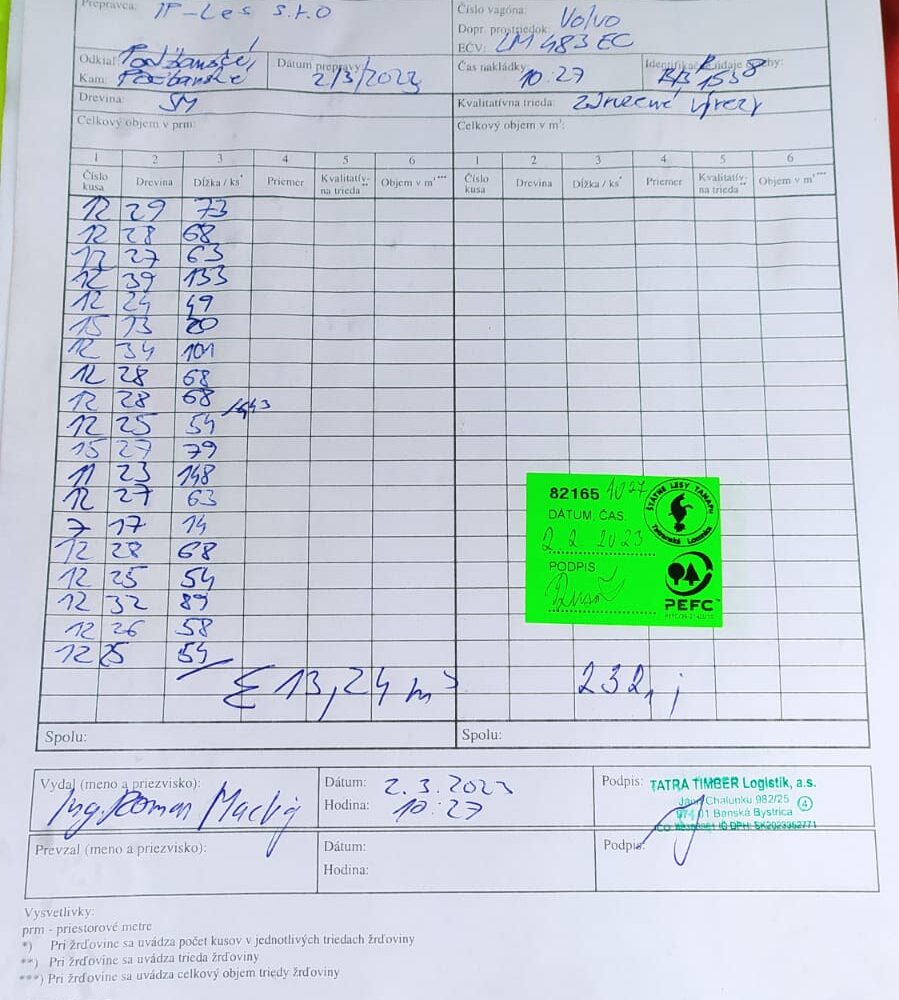 Prepravca: IF-Les s.r.o
Číslo vagóna:
Dopr. prostriedok: Volvo
EČV: LM 483 EC
Odkiaľ: Podbanské
Kam: Podbanské
Dátum prepravy: 2/3/2023
Čas nakládky: 10:27
Identifikačné údaje
Drevina: SM
Kvalitatívna trieda: združené výrezy
Celkový objem v prm:
Celkový objem v m³:
1 2 3 4 5 6 1 2 3 4 5 6
Číslo kusa Drevina Dĺžka / ks* Priemer Kvalitatív-na trieda** Objem v m³*** Číslo kusa Drevina Dĺžka / ks* Priemer Kvalitatív-na trieda** Objem v m³***
12 29 73
12 28 68
12 27 63
12 39 133
12 24 49
15 13 20
12 34 101
12 28 68
12 28 68
12 25 54
15 27 79
11 23 148
12 27 63
7 17 14
12 28 68
12 25 54
12 32 89
12 26 58
12 25 54
Σ 13,24 m³
232,j
82165 1027
DÁTUM, ČAS
2 2 2023
PODPIS
ŠTÁTNE LESY TANAPU
Tatranská Lomnica
PEFC™
Spolu:
Spolu:
Vydal (meno a priezvisko):
Ing. Roman Macký
Dátum: 2.3.2023
Hodina: 10:27
Podpis:
TATRA TIMBER Logistik, a.s.
Jána Chalupku 982/25
974 01 Banská Bystrica
4
Prevzal (meno a priezvisko):
Dátum:
Hodina:
Podpis:
Vysvetlivky:
prm - priestorové metre
*) Pri žrďovine sa uvádza počet kusov v jednotlivých triedach žrďoviny
**) Pri žrďovine sa uvádza trieda žrďoviny
***) Pri žrďovine sa uvádza celkový objem triedy žrďoviny